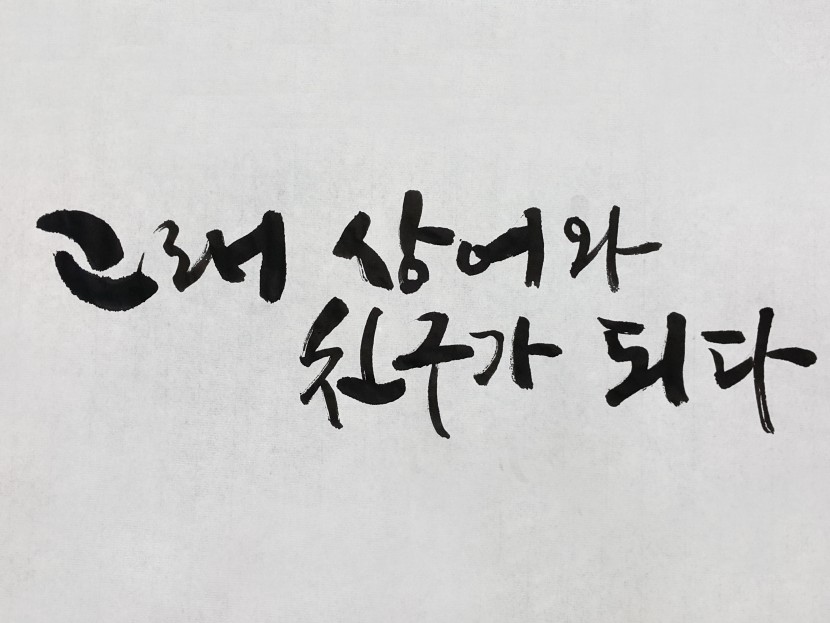 고래 상어와
친구가 되다